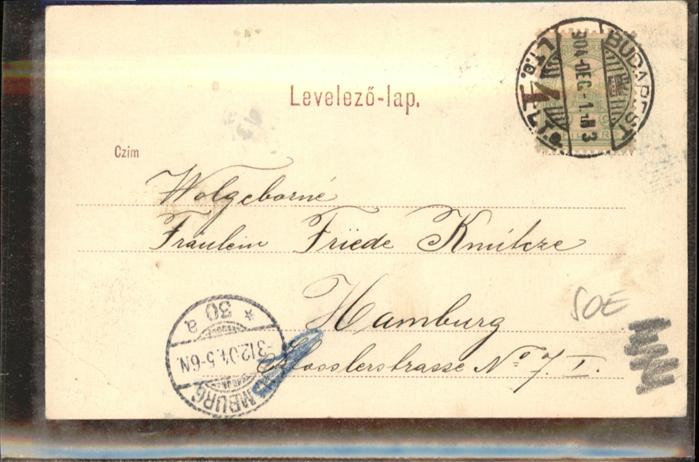 Levelező-lap.
BUDAPEST
904 DEC -1
4
Czim
Wolgeborné
Fräulein Friede Knütze
Hamburg
Mosslerstrasse No 7. I.
SOE
HAMBURG
* 30 a
3.12.04. 5-6N.